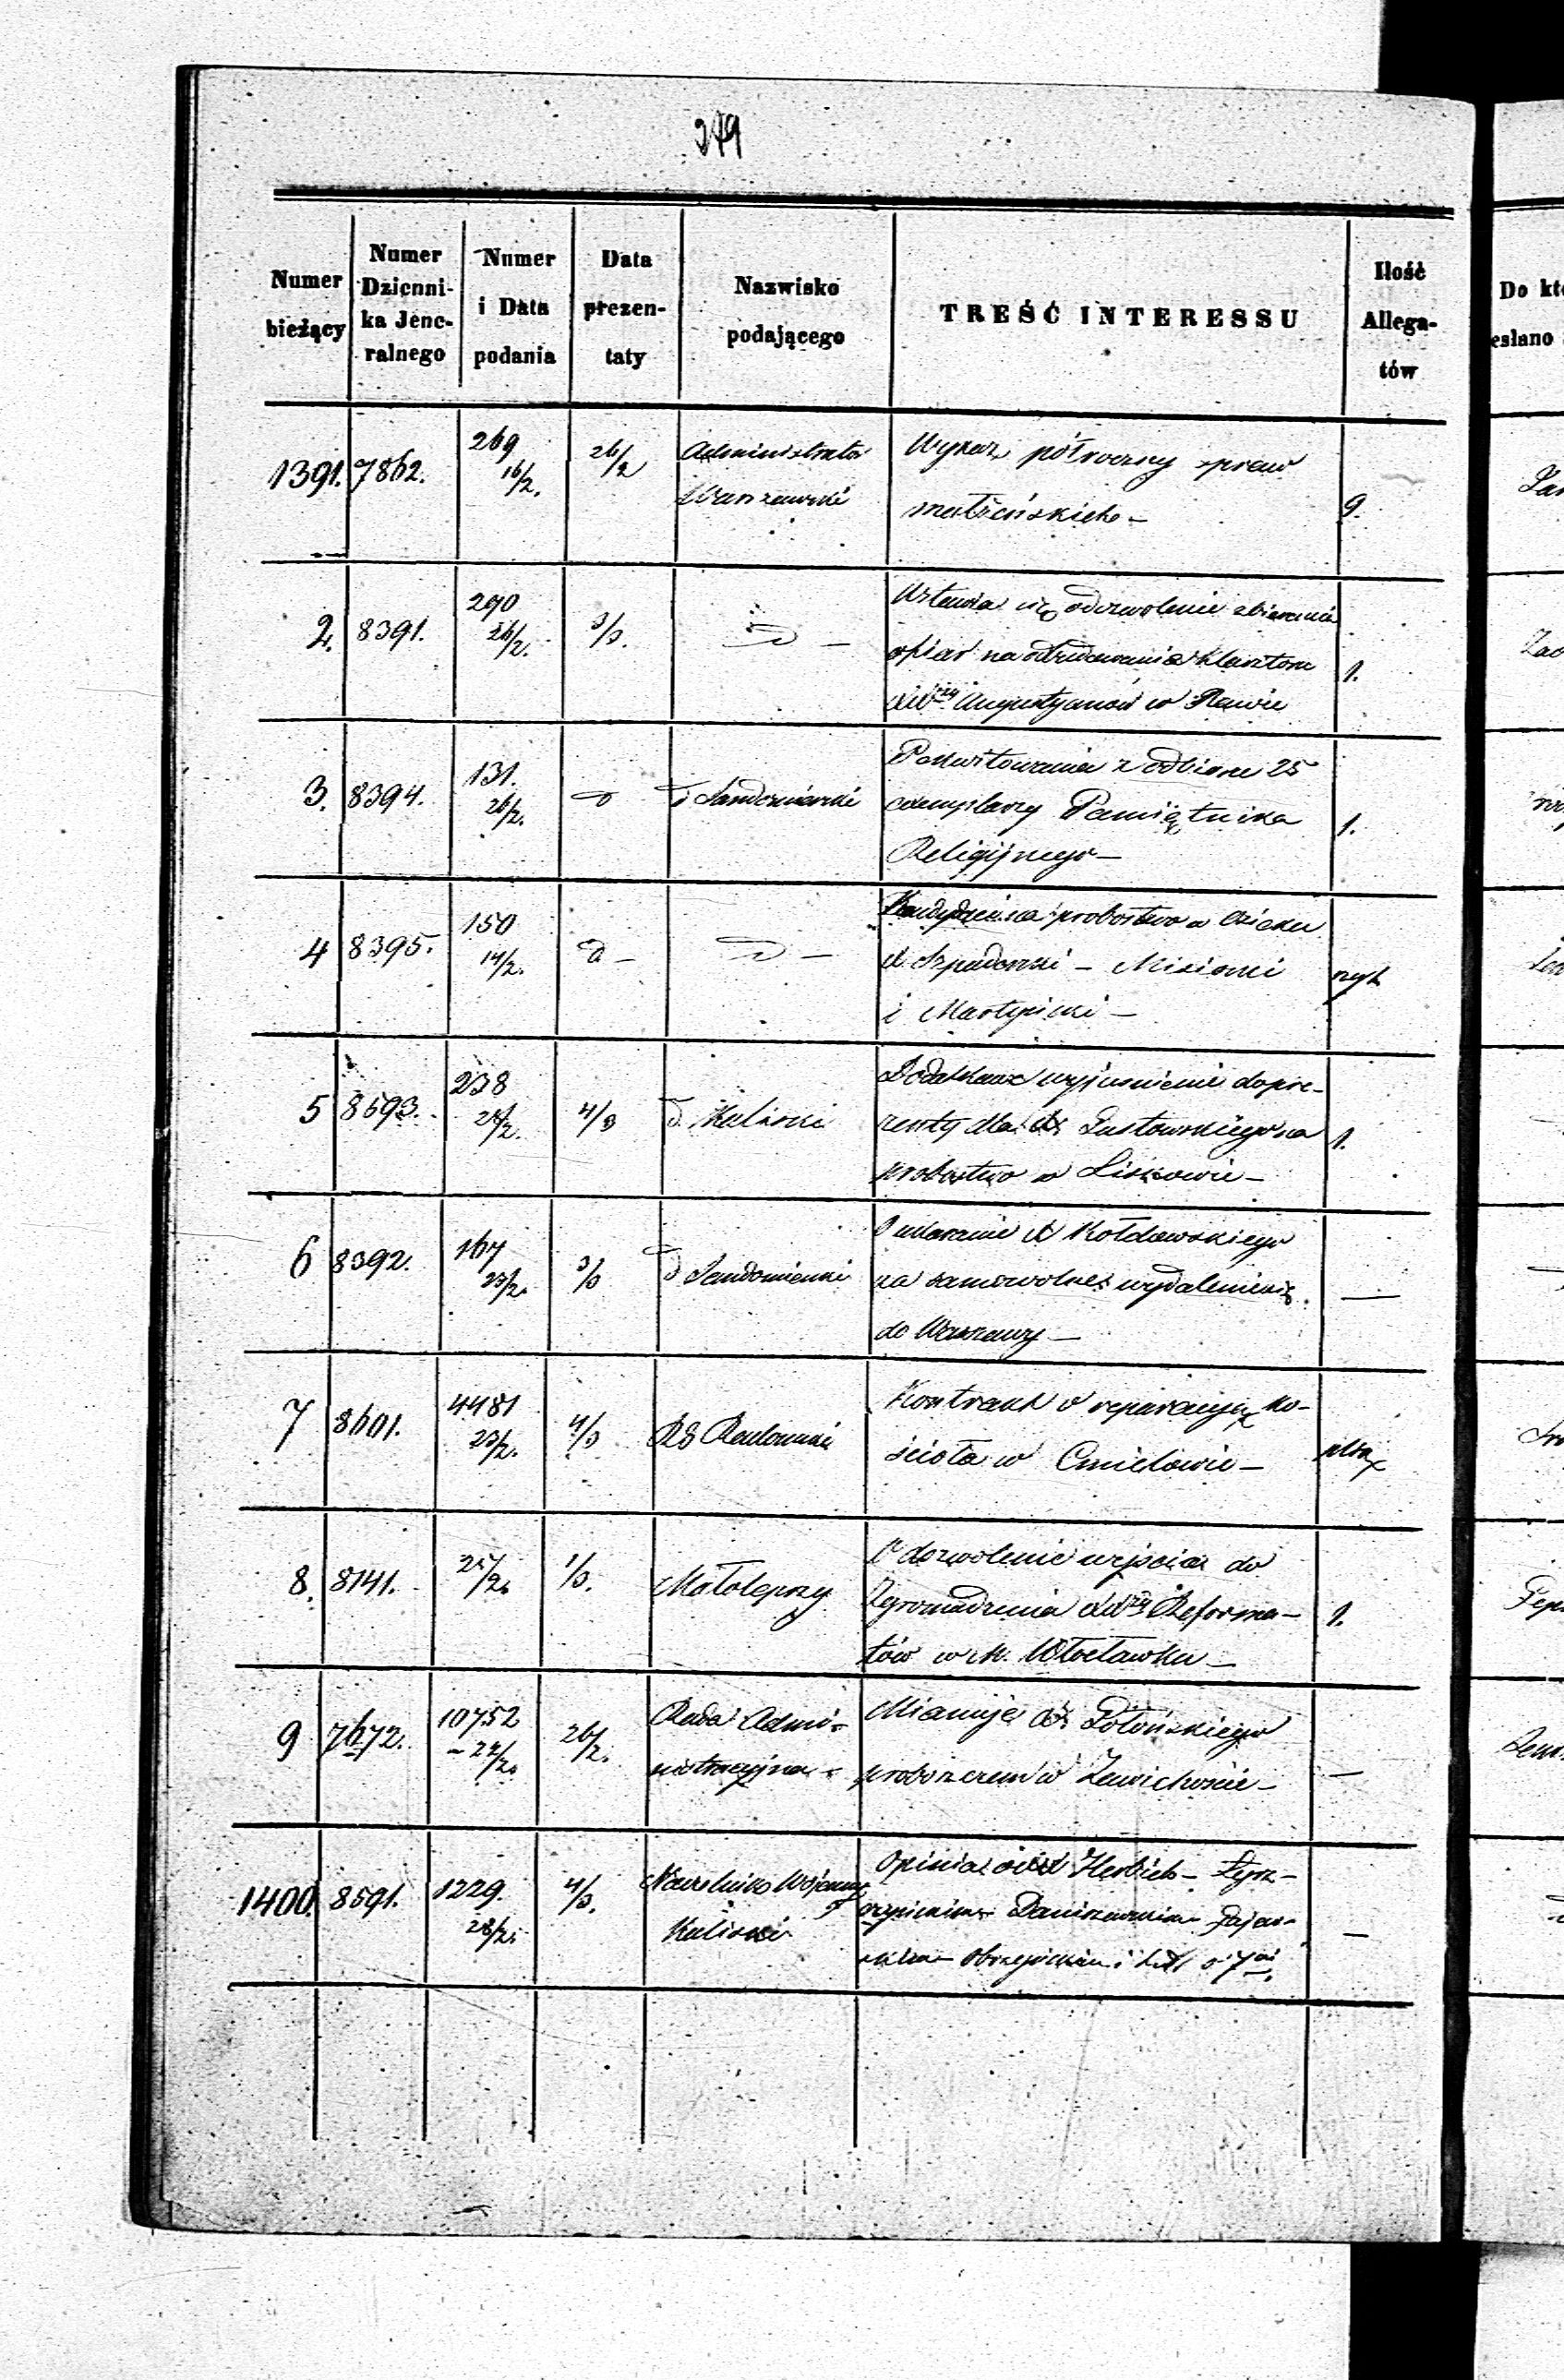 279
Numer bieżący
Numer Dzienni-ka Jene-ralnego
Numer i Data podania
Data prezen-taty
Nazwisko podającego
TREŚĆ INTERESSU
Ilość Allega-tów
Do kt
esłano
1391. 7862. 269 16/2. 26/2 Administrator Warszawski
Wykaz półroczny spraw
małżeńskich - 9.
2. 8391. 290 26/2. 3/3. D -
Wstawia się o dozwolenie zbierania
ofiar na odrestaurowanie Klasztoru
XXży Augustyanów w Rawie 1.
3. 8394. 131. 26/2. D D Sandomierski
Pokwitowania z odbioru 25
exemplarzy Pamiętnika
Religijnego - 1.
4 8395. 150 14/2. D - D -
Kandydaci na probostwo w
X. - Misioni
i Martyński -
5 8593. 238 28/2. 4/3 D. Kaliski
Dodatkowe wyjaśnienie do pre-
zenty dla X. Pustowskiego na 1.
probostwo w Liskowie -
6 8392. 167 23/2. 3/3 D Sandomierski
Ukaranie X Kołdowskiego
na samowolne wydalenie się
do Warszawy -
7 8601. 4481 23/2. 4/3 RG Radomski
Kontrakt o reparacyą ko-
ścioła w Cmielowie -
8. 8141. 25/2. 1/3. Małolepszy
O dozwolenie wejścia do
Zgromadzenia XXży Reforma-
tów w m. Włocławku - 1.
9 7672. 10752 - 24/2. 26/2. Rada Admi-
nistracyjna -
Mianuje X. Połońskiego
proboszczem w Zawichoście - —
1400. 8591. 1229. 28/2. 4/3. Naczelnik Wojenny
Kaliski
Opinia o XX Herbich -
i o 7miu —